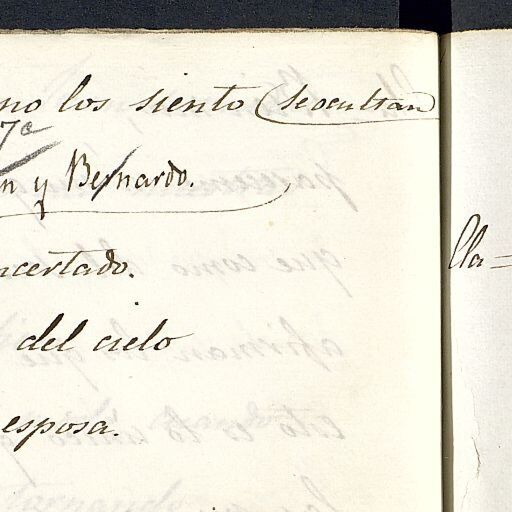 no los siento (se ocultan)
7ª
n y Bernardo.
ncertado.
del cielo
esposa.
Cla=